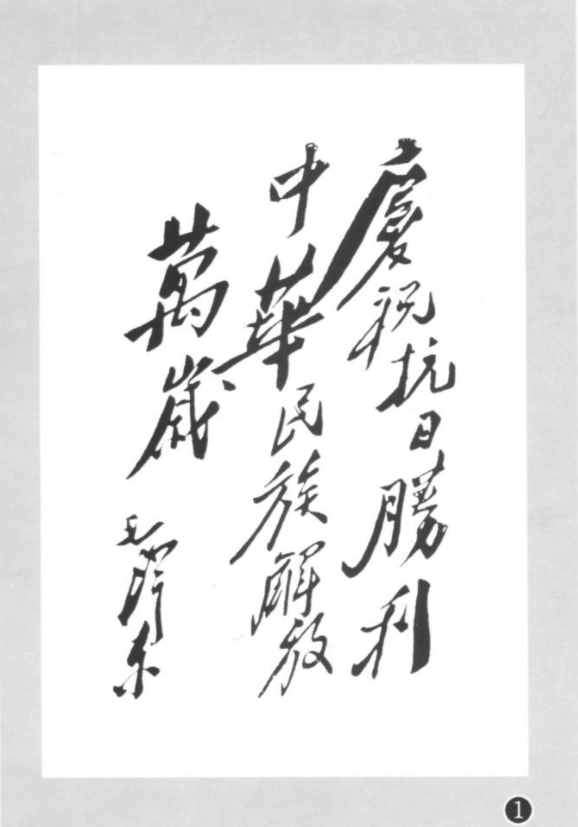 慶祝抗日勝利
中華民族解放
萬歲
毛澤东
1